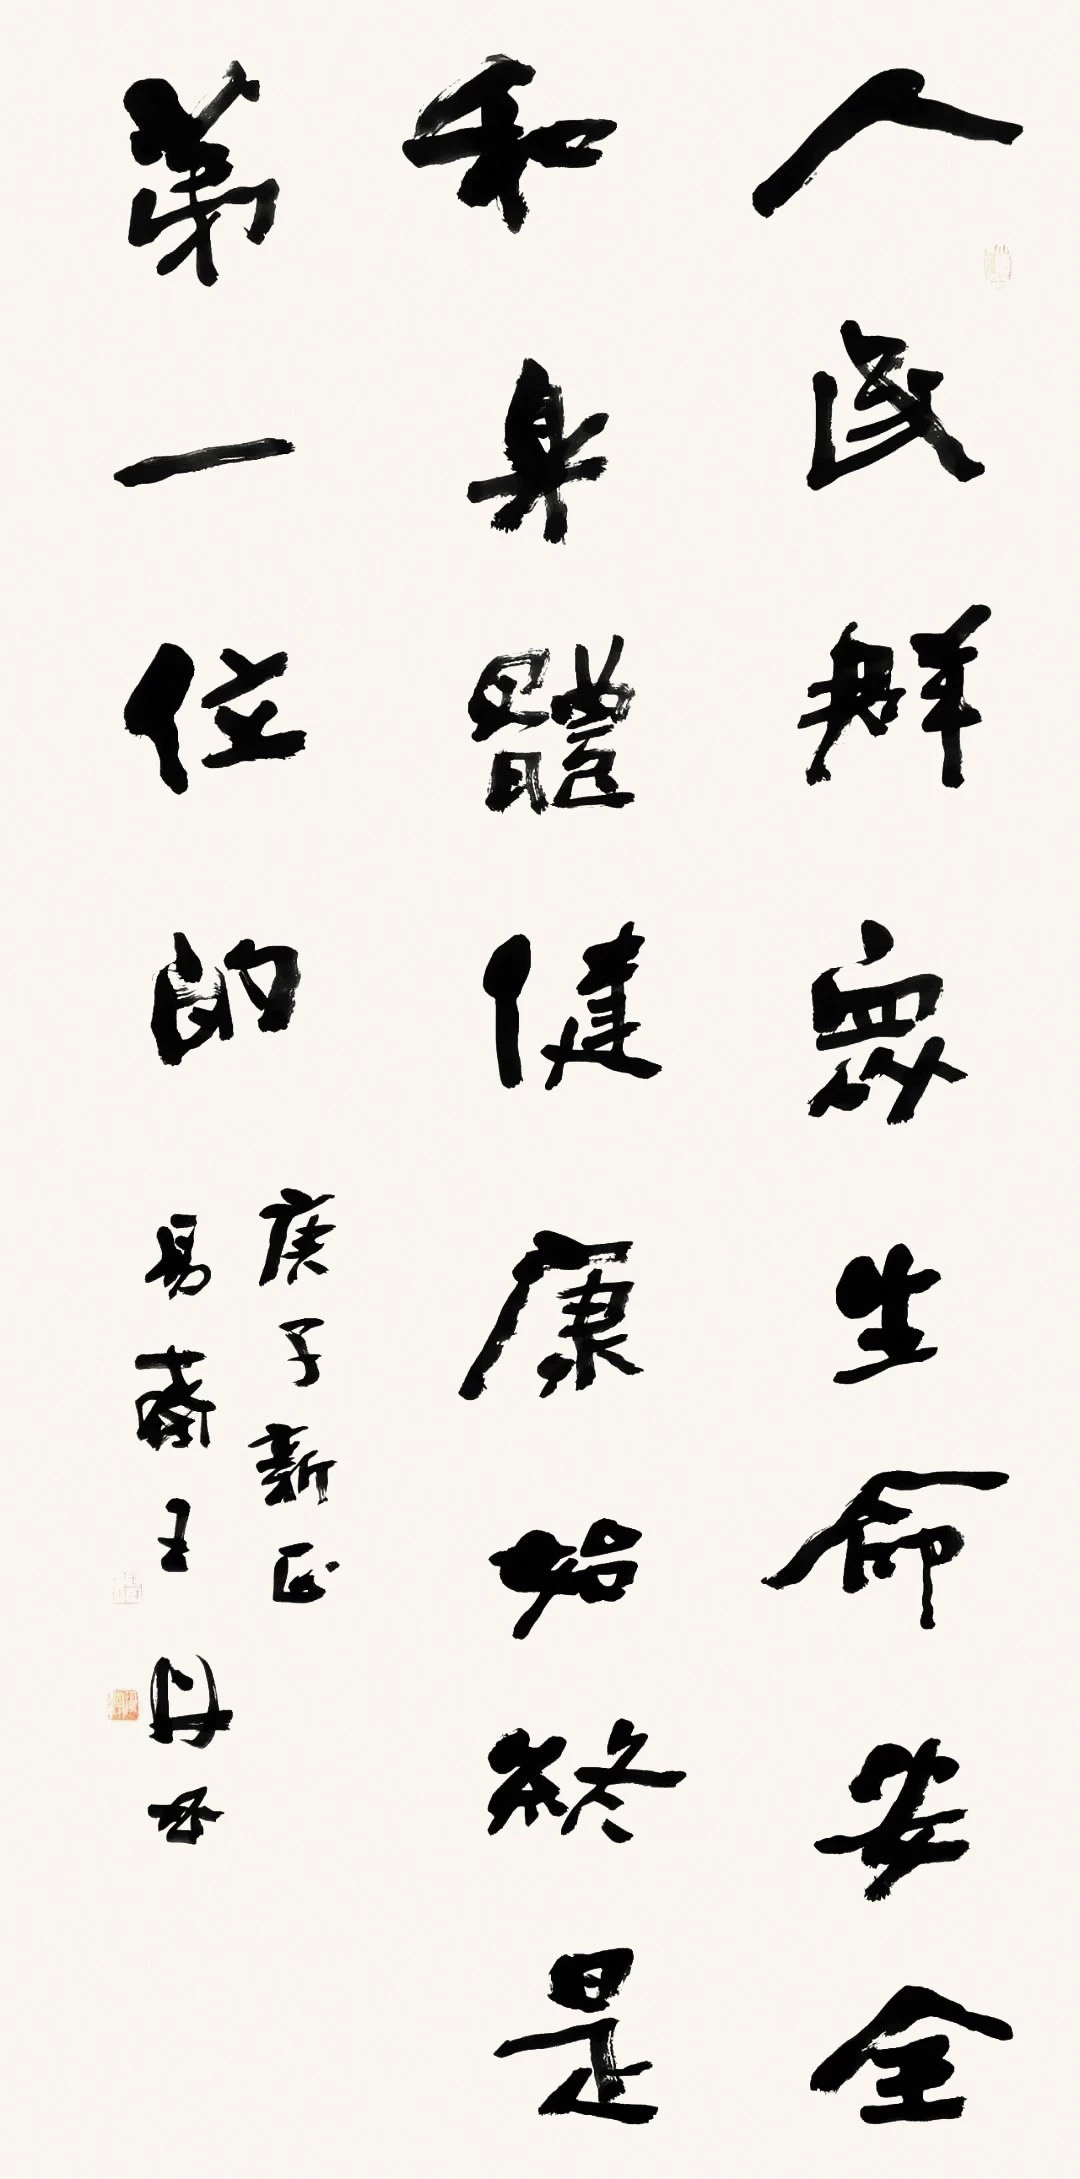 人民群衆生命安全
和身體健康始終是
第一位的
庚子新正
易齋王丹